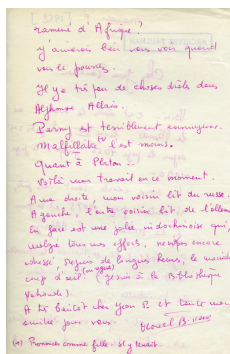 ramené d'Afrique ?
J'aimerais bien vous voir quand
vous le pourrez.
Il y a très peu de choses drôles dans
Alphonse Allais.
Parny est terriblement ennuyeux.
Malfillatre (*) l'est moins.
Quant à Platon .
Voilà mon travail en ce moment.
A ma droite, mon voisin lit du russe.
A gauche, l'autre voisin lit de l'allem
En face est une jolie indochinoise qui,
malgré tous mes efforts, ne m'a pas encore
adressé, depuis de longues heures, le moindre
coup d'œil. (Je suis à la Bibliothèque
Nationale).
A très bientôt cher Jean P. et toute mon
amitié pour vous.
(*) Prononcer comme fille - il y tenait.